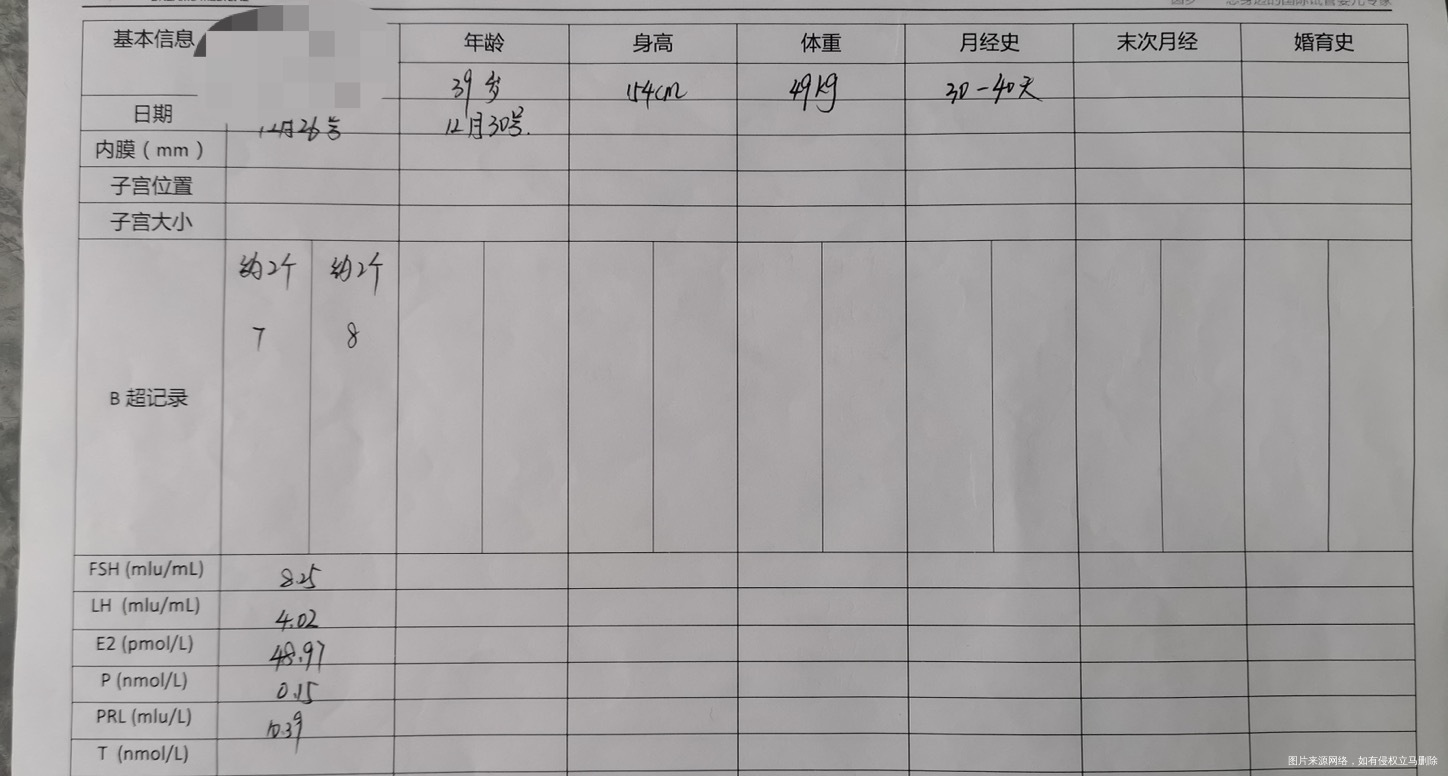 基本信息 年龄 身高 体重 月经史 末次月经 婚育史
39岁 154cm 49kg 30-40天
日期 12月26号 12月30号.
内膜（mm）
子宫位置
子宫大小
约2个 约2个
7 8
B 超记录
FSH (mlu/mL) 8.25
LH (mlu/mL) 4.02
E2 (pmol/L) 48.97
P (nmol/L) 0.15
PRL (mlu/L) 10.39
T (nmol/L)
图片来源网络，如有侵权立马删除